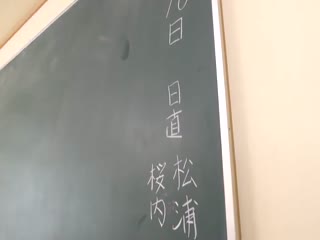 日 日直 松浦
桜内